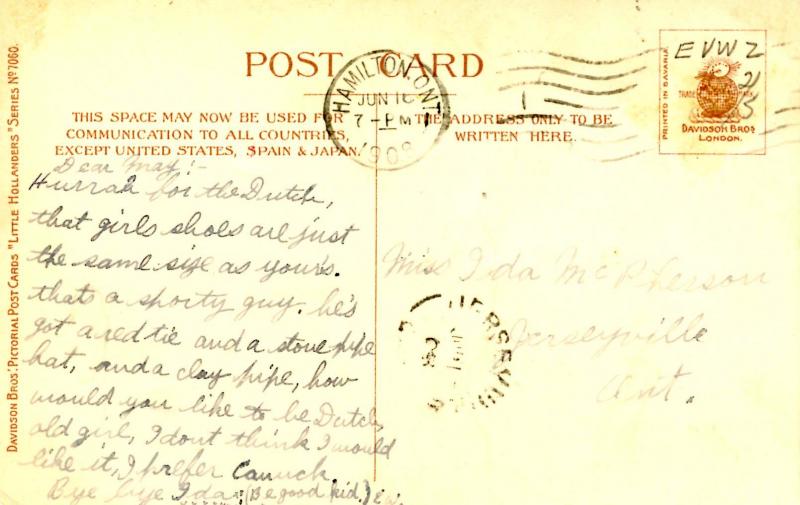 POST CARD
THIS SPACE MAY NOW BE USED FOR
COMMUNICATION TO ALL COUNTRIES,
EXCEPT UNITED STATES, SPAIN & JAPAN.
THE ADDRESS ONLY TO BE
WRITTEN HERE.
HAMILTON, ONT
JUN 16
7 - PM
1
PRINTED IN BAVARIA
TRADE MARK
DAVIDSON BROS
LONDON.
EVWZ
DAVIDSON BROS.' PICTORIAL POST CARDS "LITTLE HOLLANDERS" SERIES Nº 7060.
Dear May:-
Hurrah for the Dutch,
that girls shoes are just
the same size as yours.
thats a sporty guy. he's
got a red tie and a stove pipe
hat, and a clay pipe, how
would you like to be Dutch
old girl, I dont think I would
like it, I prefer Canuck.
Bye bye Ida. (Be good kid.)
Miss Ida McPherson
Jerseyville
Ont.